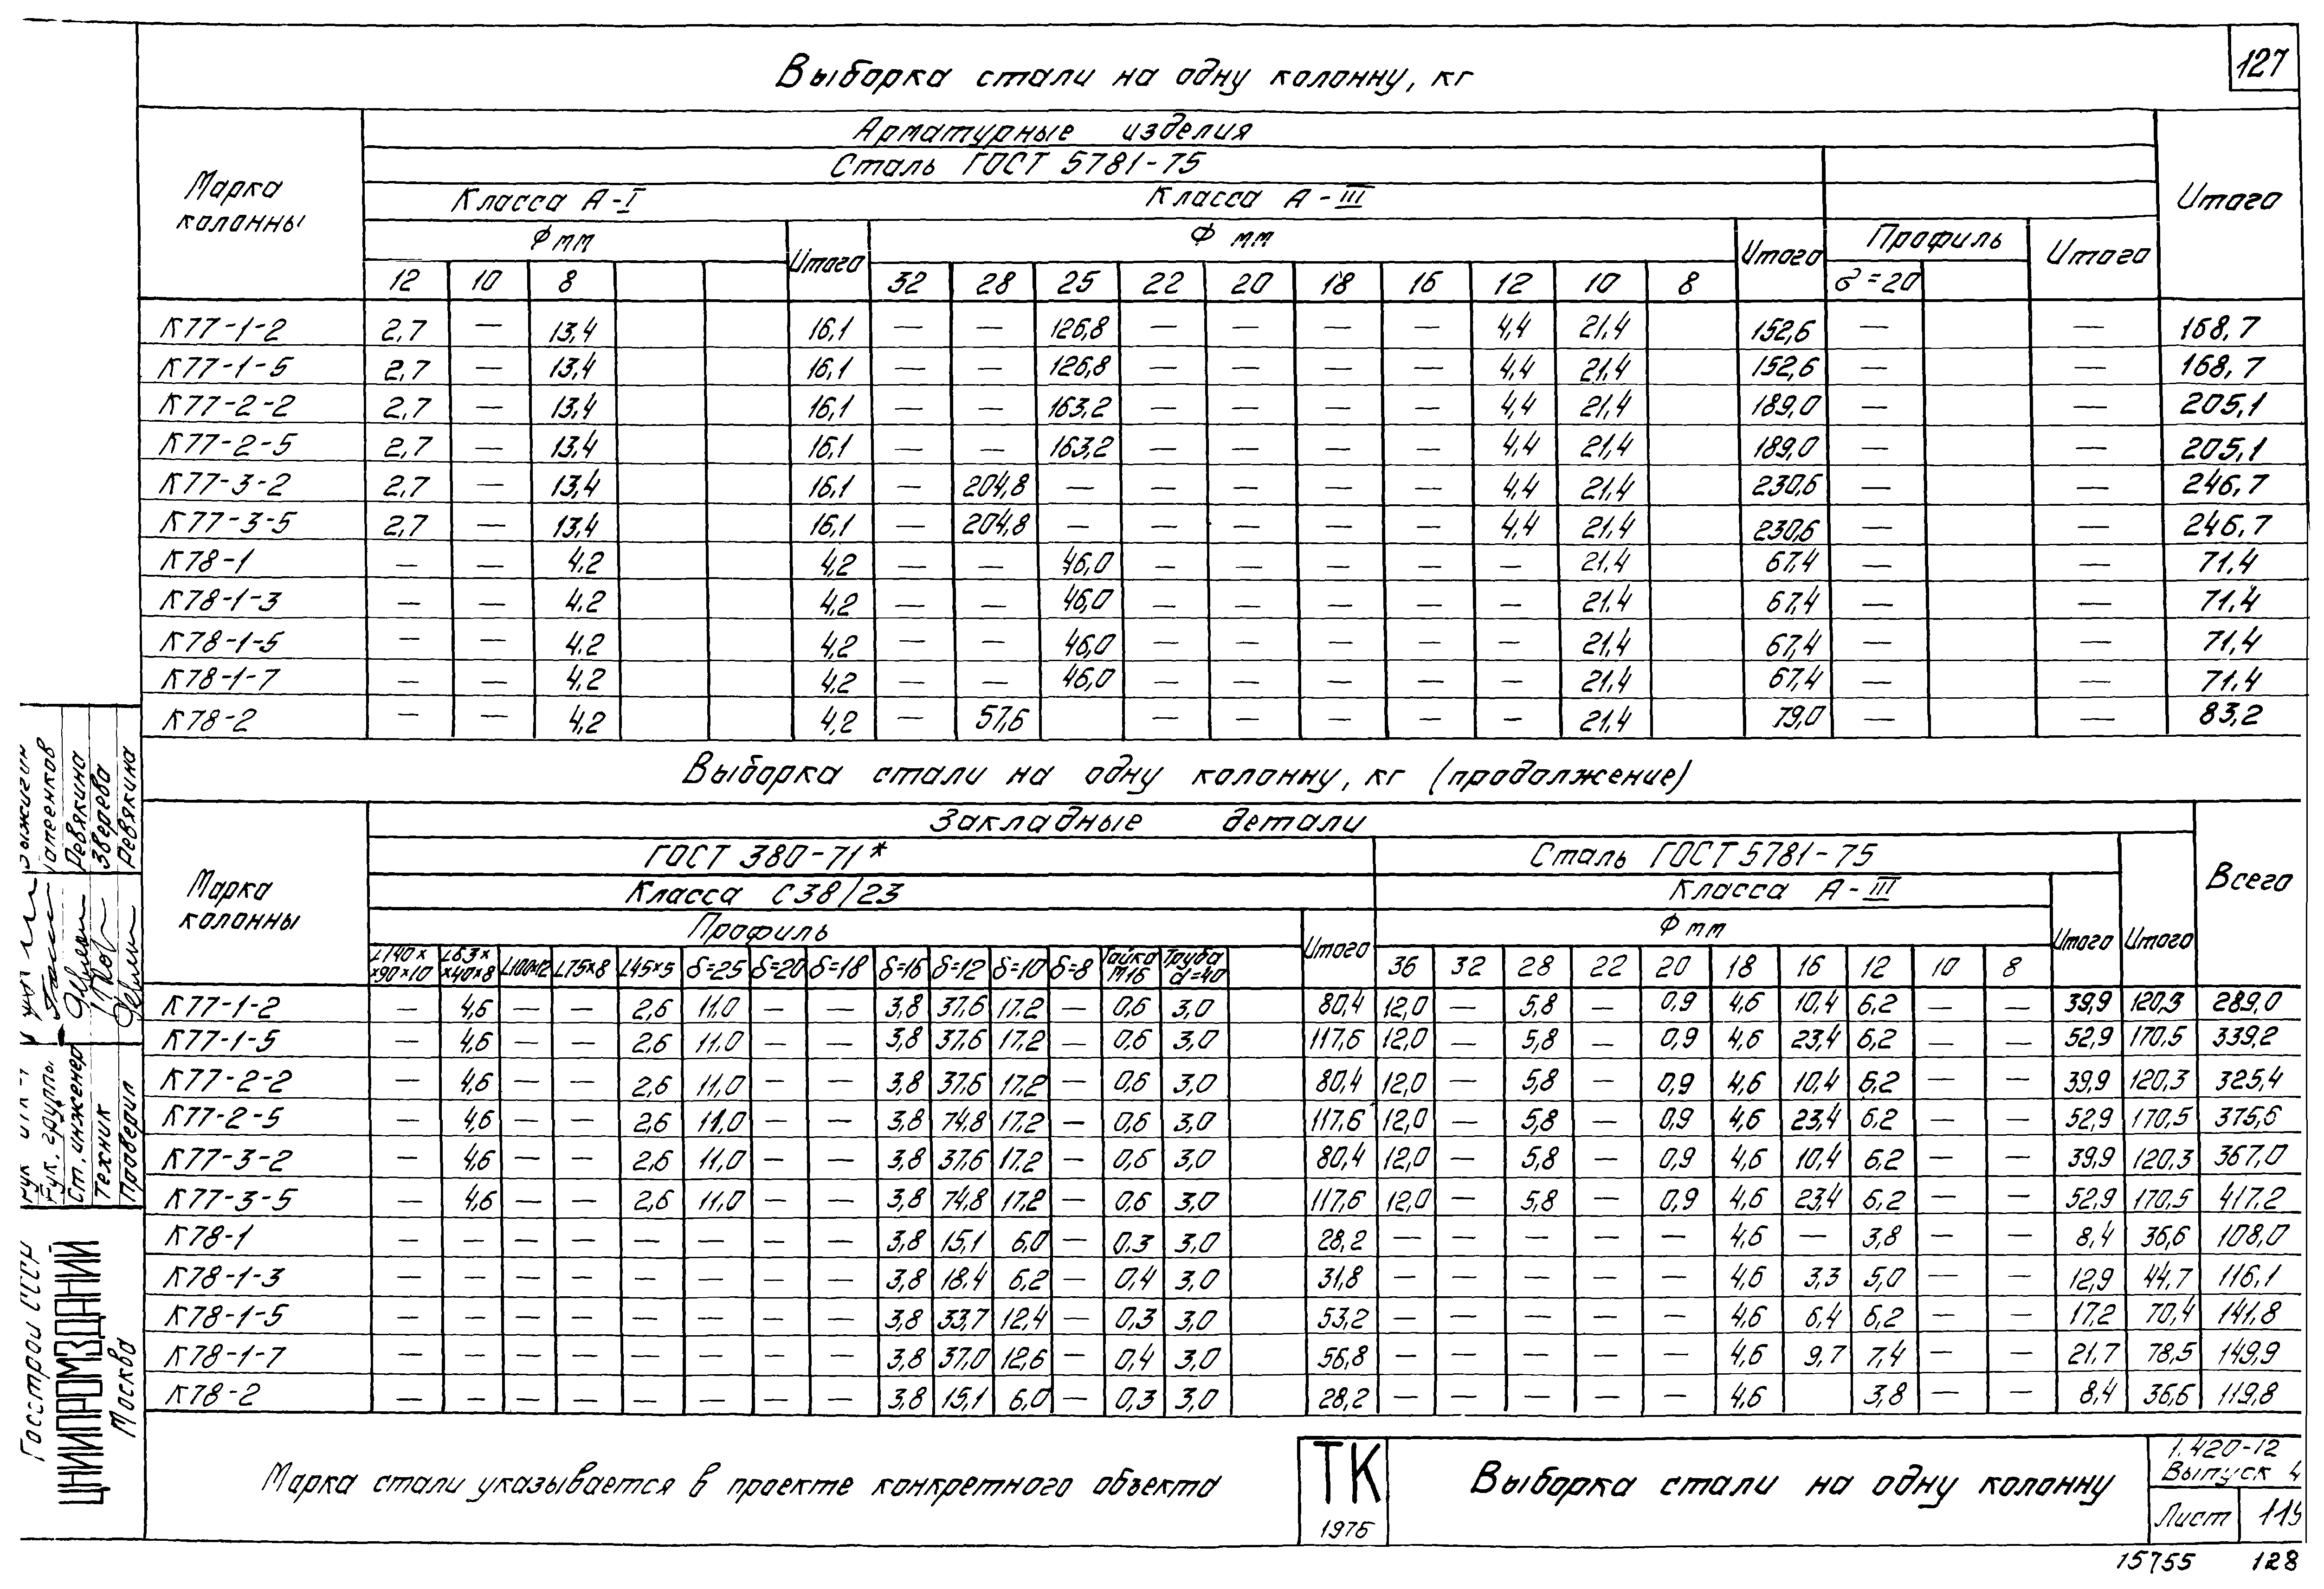 127
Выборка стали на одну колонну, кг
Марка колонны
Арматурные изделия
Итого
Сталь ГОСТ 5781-75
Класса А-I Класса А-III
Ф мм Итого Ф мм Итого Профиль Итого
12 10 8 32 28 25 22 20 18 16 12 10 8 δ=20
К77-1-2 2,7 — 13,4 16,1 — — 126,8 — — — — 4,4 21,4 152,6 — — 168,7
К77-1-5 2,7 — 13,4 16,1 — — 126,8 — — — — 4,4 21,4 152,6 — — 168,7
К77-2-2 2,7 — 13,4 16,1 — — 163,2 — — — — 4,4 21,4 189,0 — — 205,1
К77-2-5 2,7 — 13,4 16,1 — — 163,2 — — — — 4,4 21,4 189,0 — — 205,1
К77-3-2 2,7 — 13,4 16,1 — 204,8 — — — — — 4,4 21,4 230,6 — — 246,7
К77-3-5 2,7 — 13,4 16,1 — 204,8 — — — — — 4,4 21,4 230,6 — — 246,7
К78-1 — — 4,2 4,2 — — 46,0 — — — — — 21,4 67,4 — — 71,4
К78-1-3 — — 4,2 4,2 — — 46,0 — — — — — 21,4 67,4 — — 71,4
К78-1-5 — — 4,2 4,2 — — 46,0 — — — — — 21,4 67,4 — — 71,4
К78-1-7 — — 4,2 4,2 — — 46,0 — — — — — 21,4 67,4 — — 71,4
К78-2 — — 4,2 4,2 — 57,6 — — — — — 21,4 79,0 — — 83,2
Выборка стали на одну колонну, кг (продолжение)
Марка колонны
Закладные детали
Всего
ГОСТ 380-71* Сталь ГОСТ 5781-75
Класса С38/23 Класса А-III
Профиль Итого Ф мм Итого Итого
L140××90×10 L63××40×8 L100×12 L75×8 L45×5 δ=25 δ=20 δ=18 δ=16 δ=12 δ=10 δ=8 Гайка М16 Труба d=40 36 32 28 22 20 18 16 12 10 8
К77-1-2 — 4,6 — — 2,6 11,0 — — 3,8 37,6 17,2 — 0,6 3,0 80,4 12,0 — 5,8 — 0,9 4,6 10,4 6,2 — — 39,9 120,3 289,0
К77-1-5 — 4,6 — — 2,6 11,0 — — 3,8 37,6 17,2 — 0,6 3,0 117,6 12,0 — 5,8 — 0,9 4,6 23,4 6,2 — — 52,9 170,5 339,2
К77-2-2 — 4,6 — — 2,6 11,0 — — 3,8 37,6 17,2 — 0,6 3,0 80,4 12,0 — 5,8 — 0,9 4,6 10,4 6,2 — — 39,9 120,3 325,4
К77-2-5 — 4,6 — — 2,6 11,0 — — 3,8 74,8 17,2 — 0,6 3,0 117,6 12,0 — 5,8 — 0,9 4,6 23,4 6,2 — — 52,9 170,5 375,6
К77-3-2 — 4,6 — — 2,6 11,0 — — 3,8 37,6 17,2 — 0,6 3,0 80,4 12,0 — 5,8 — 0,9 4,6 10,4 6,2 — — 39,9 120,3 367,0
К77-3-5 — 4,6 — — 2,6 11,0 — — 3,8 74,8 17,2 — 0,6 3,0 117,6 12,0 — 5,8 — 0,9 4,6 23,4 6,2 — — 52,9 170,5 417,2
К78-1 — — — — — — — — 3,8 15,1 6,0 — 0,3 3,0 28,2 — — — — — 4,6 — 3,8 — — 8,4 36,6 108,0
К78-1-3 — — — — — — — — 3,8 18,4 6,2 — 0,4 3,0 31,8 — — — — — 4,6 3,3 5,0 — — 12,9 44,7 116,1
К78-1-5 — — — — — — — — 3,8 33,7 12,4 — 0,3 3,0 53,2 — — — — — 4,6 6,4 6,2 — — 17,2 70,4 141,8
К78-1-7 — — — — — — — — 3,8 37,0 12,6 — 0,4 3,0 56,8 — — — — — 4,6 9,7 7,4 — — 21,7 78,5 149,9
К78-2 — — — — — — — — 3,8 15,1 6,0 — 0,3 3,0 28,2 — — — — — 4,6 3,8 — — 8,4 36,6 119,8
Марка стали указывается в проекте конкретного объекта
ТК
1976
Выборка стали на одну колонну
1.420-12
Выпуск 4
Лист 115
15755 128
Рук. группы
Ст. инженер Ревякина
Техник Зверева
Проверил Ревякина
Госстрой СССР
ЦНИИПРОМЗДАНИЙ
Москва